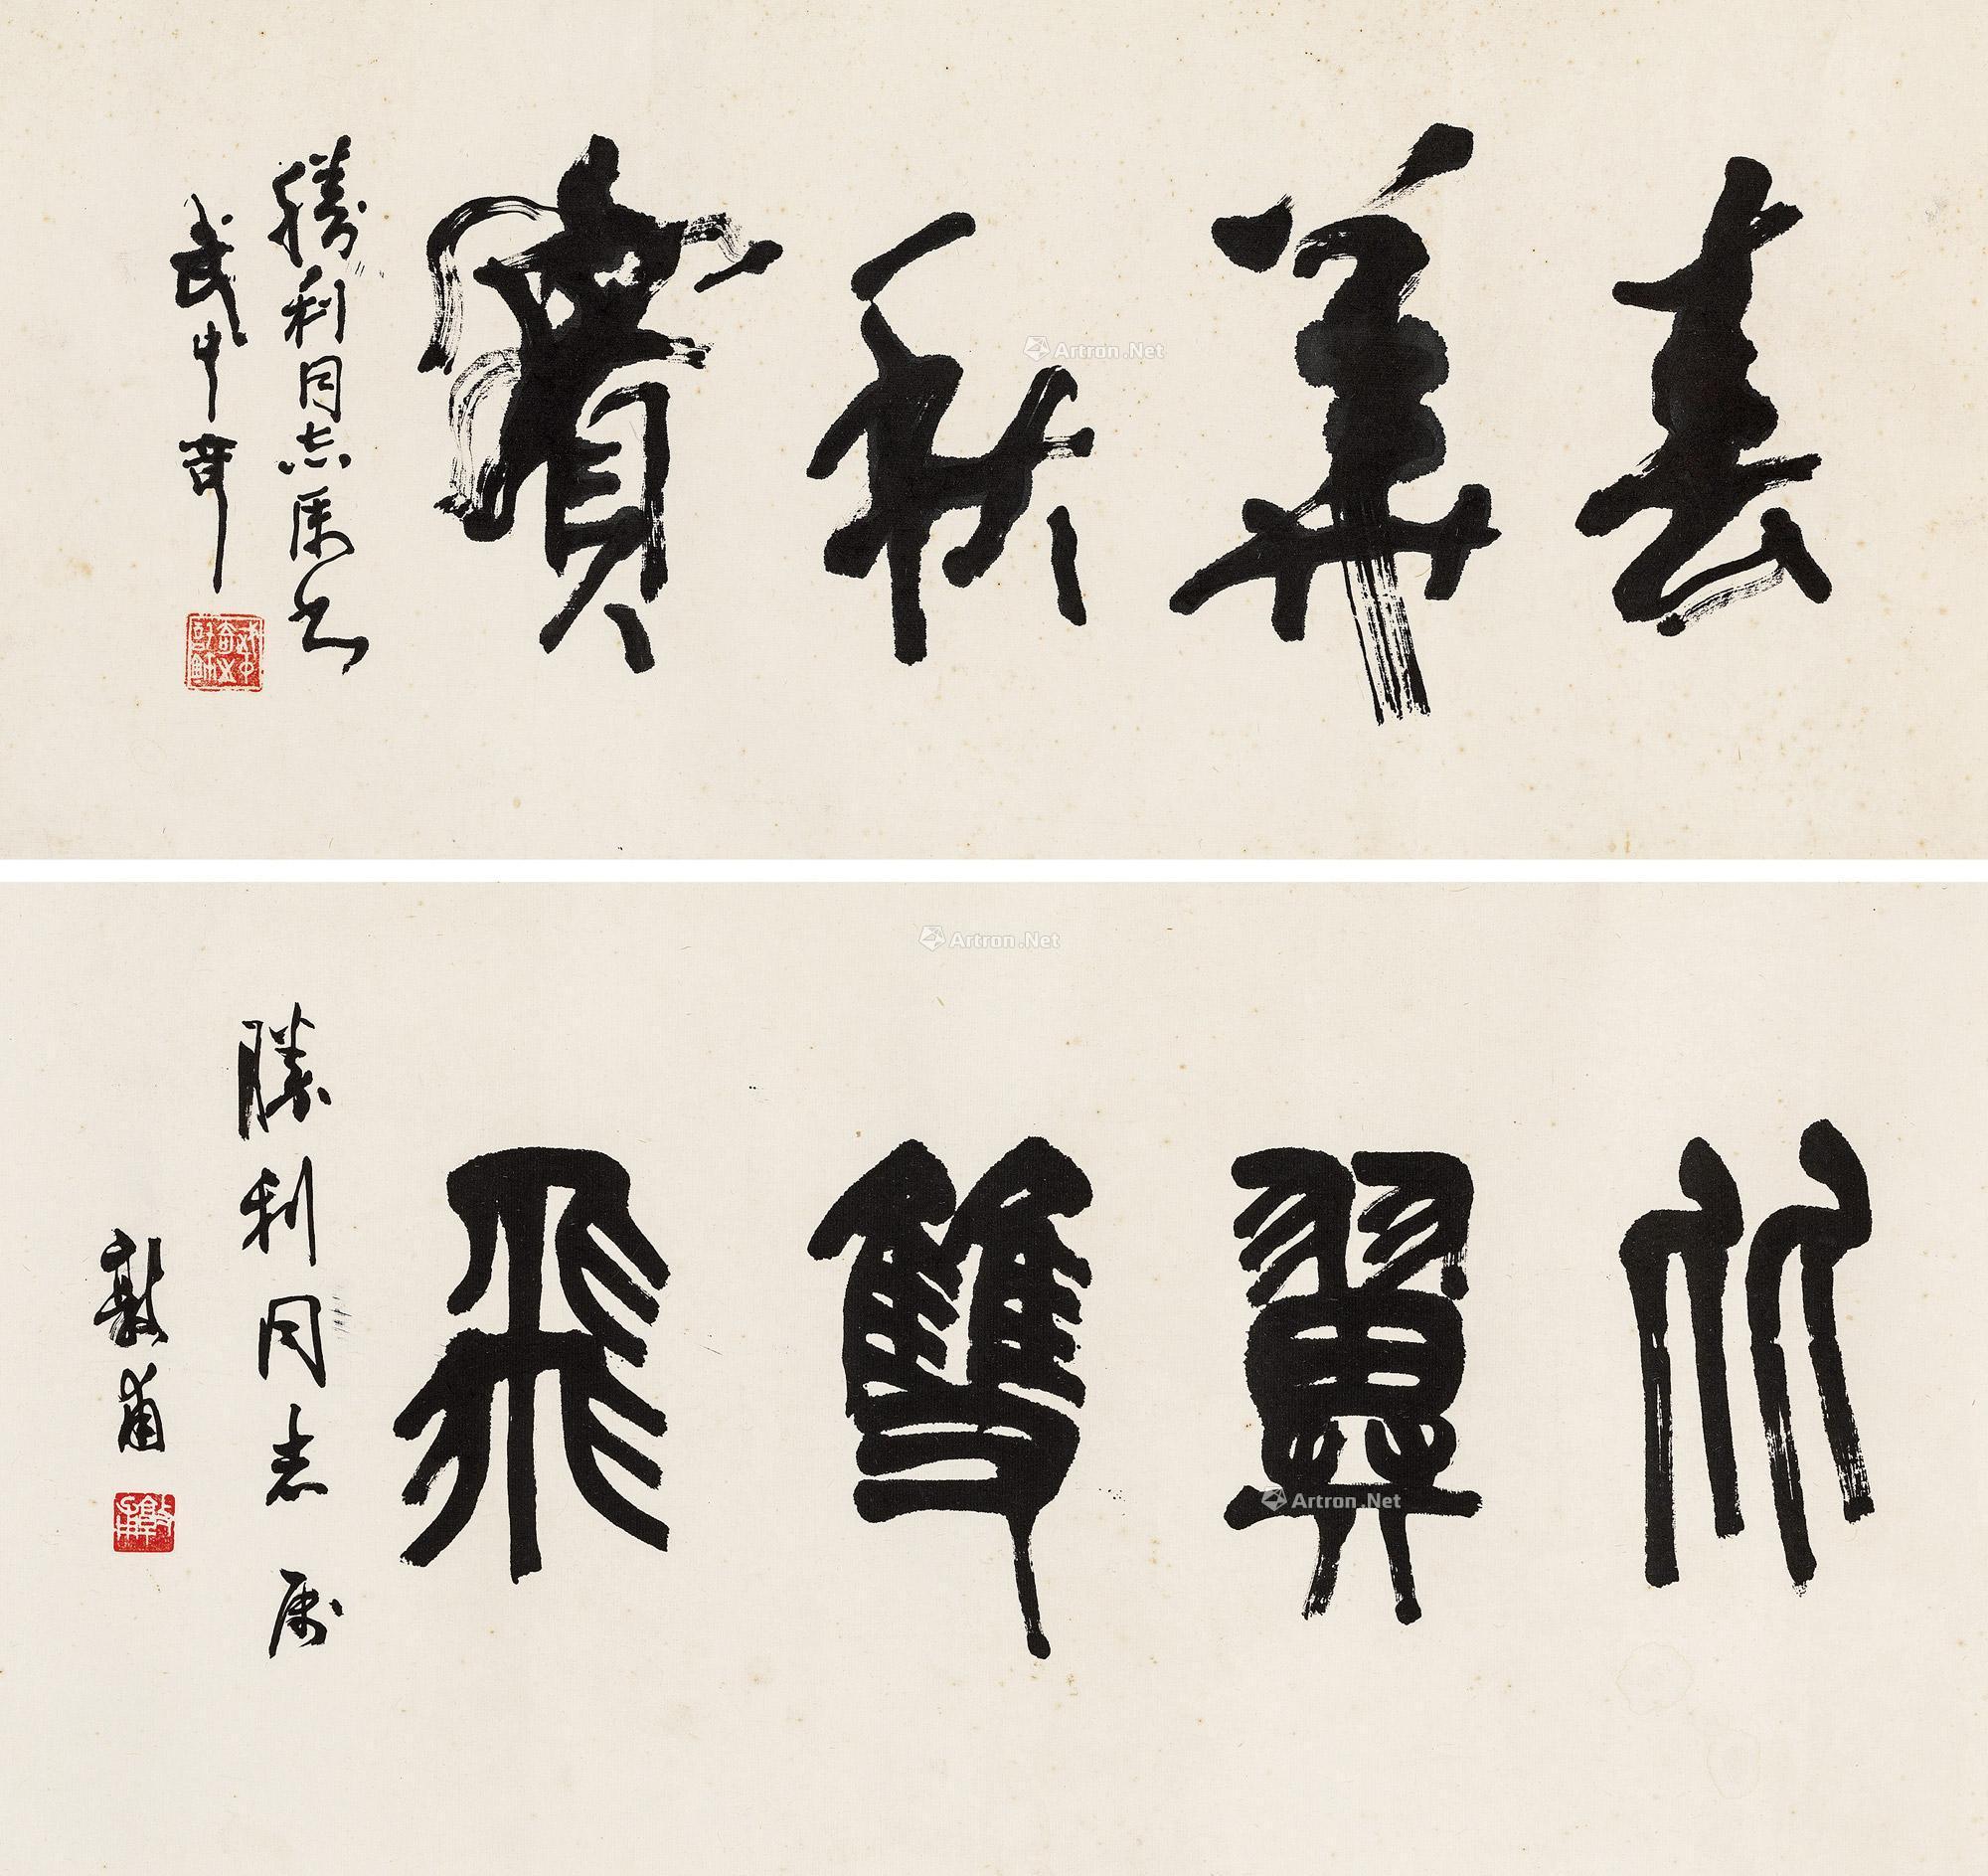 春華秋實
勝利同志屬書
武中奇
比翼雙飛
勝利同志屬
敦甫
Artron.Net
Artron.Net
Artron.Net